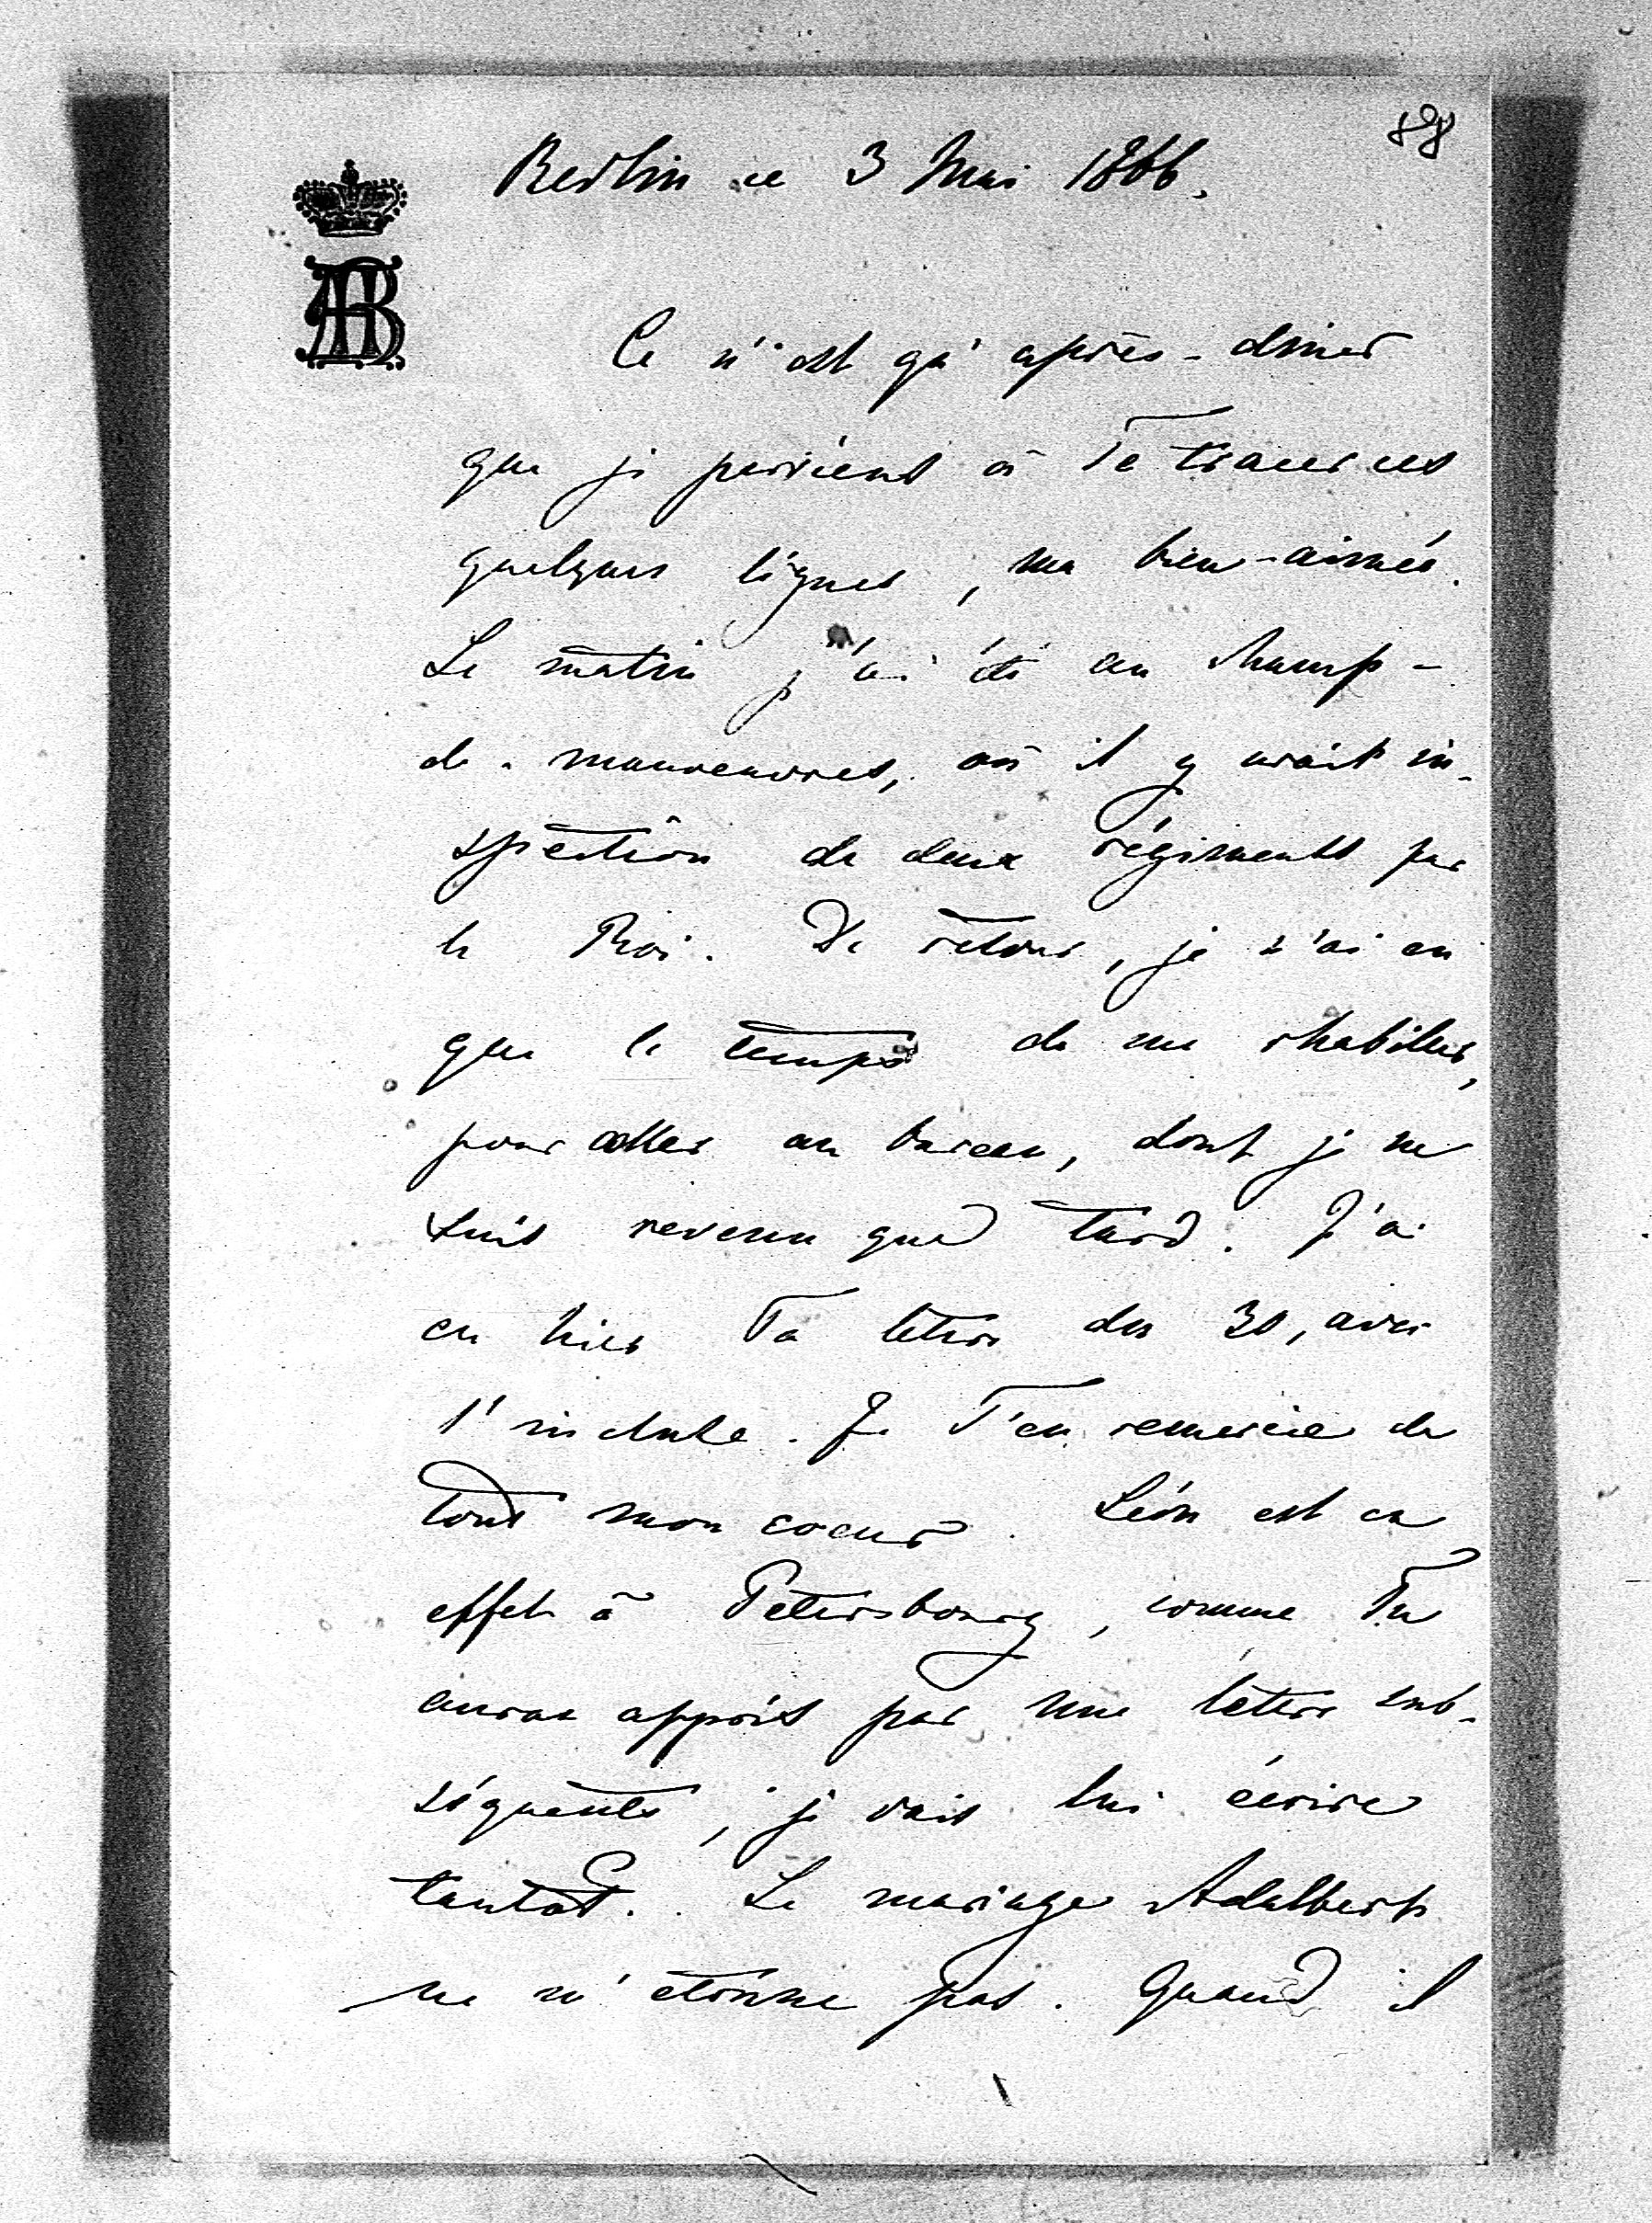 88
Berlin ce 3 Mai 1866.
AHB
Ce n'est qu'après-diner
que je parviens à Te tracer ces
quelques lignes, ma bien-aimée.
Le matin j'ai été au champ-
de-manoeuvres, où il y avait in-
spection de deux régiments par
le Roi. De retour, je n'ai eu
que le temps de me rhabiller,
pour aller au bureau, dont je ne
suis revenu que tard. J'ai
eu hier Ta lettre du 30, avec
l'incluse. Je T'en remercie de
tout mon coeur. Léon est en
effet à Petersbourg, comme Tu
auras appris par une lettre sub-
séquente; je vais lui écrire
tantôt. Le mariage Adalbert
ne m'étonne pas. Quand il